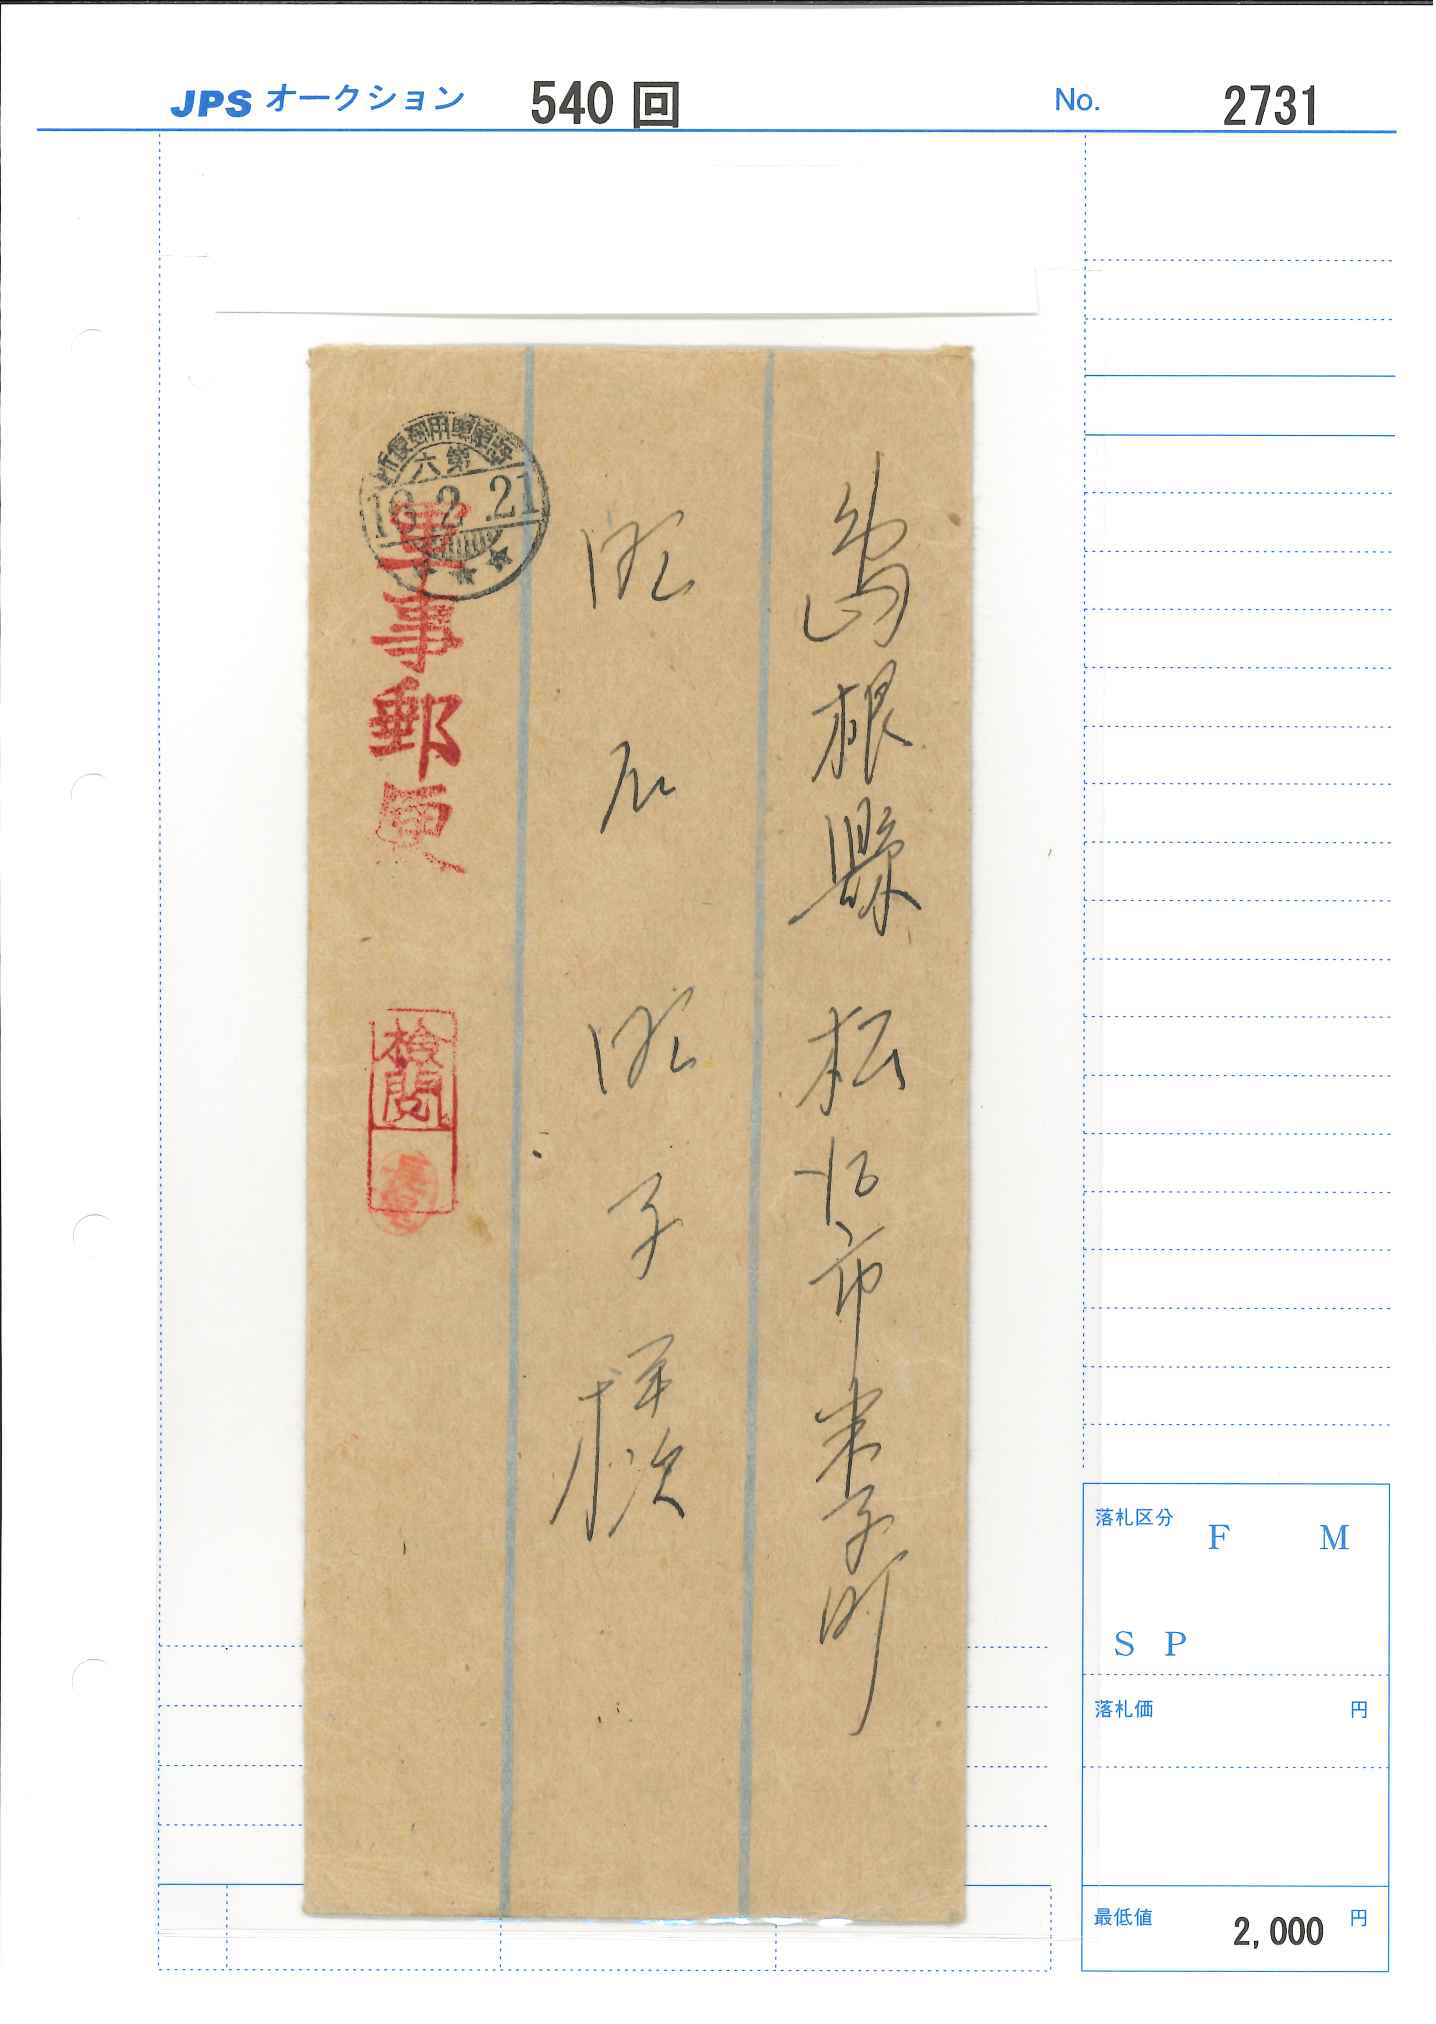 JPS オークション 540 回 No. 2731
島根縣松江市米子町
明石明子様
第六
18.2.21
軍事郵便
検閲
落札区分 F M
S P
落札価 円
最低値 2,000 円